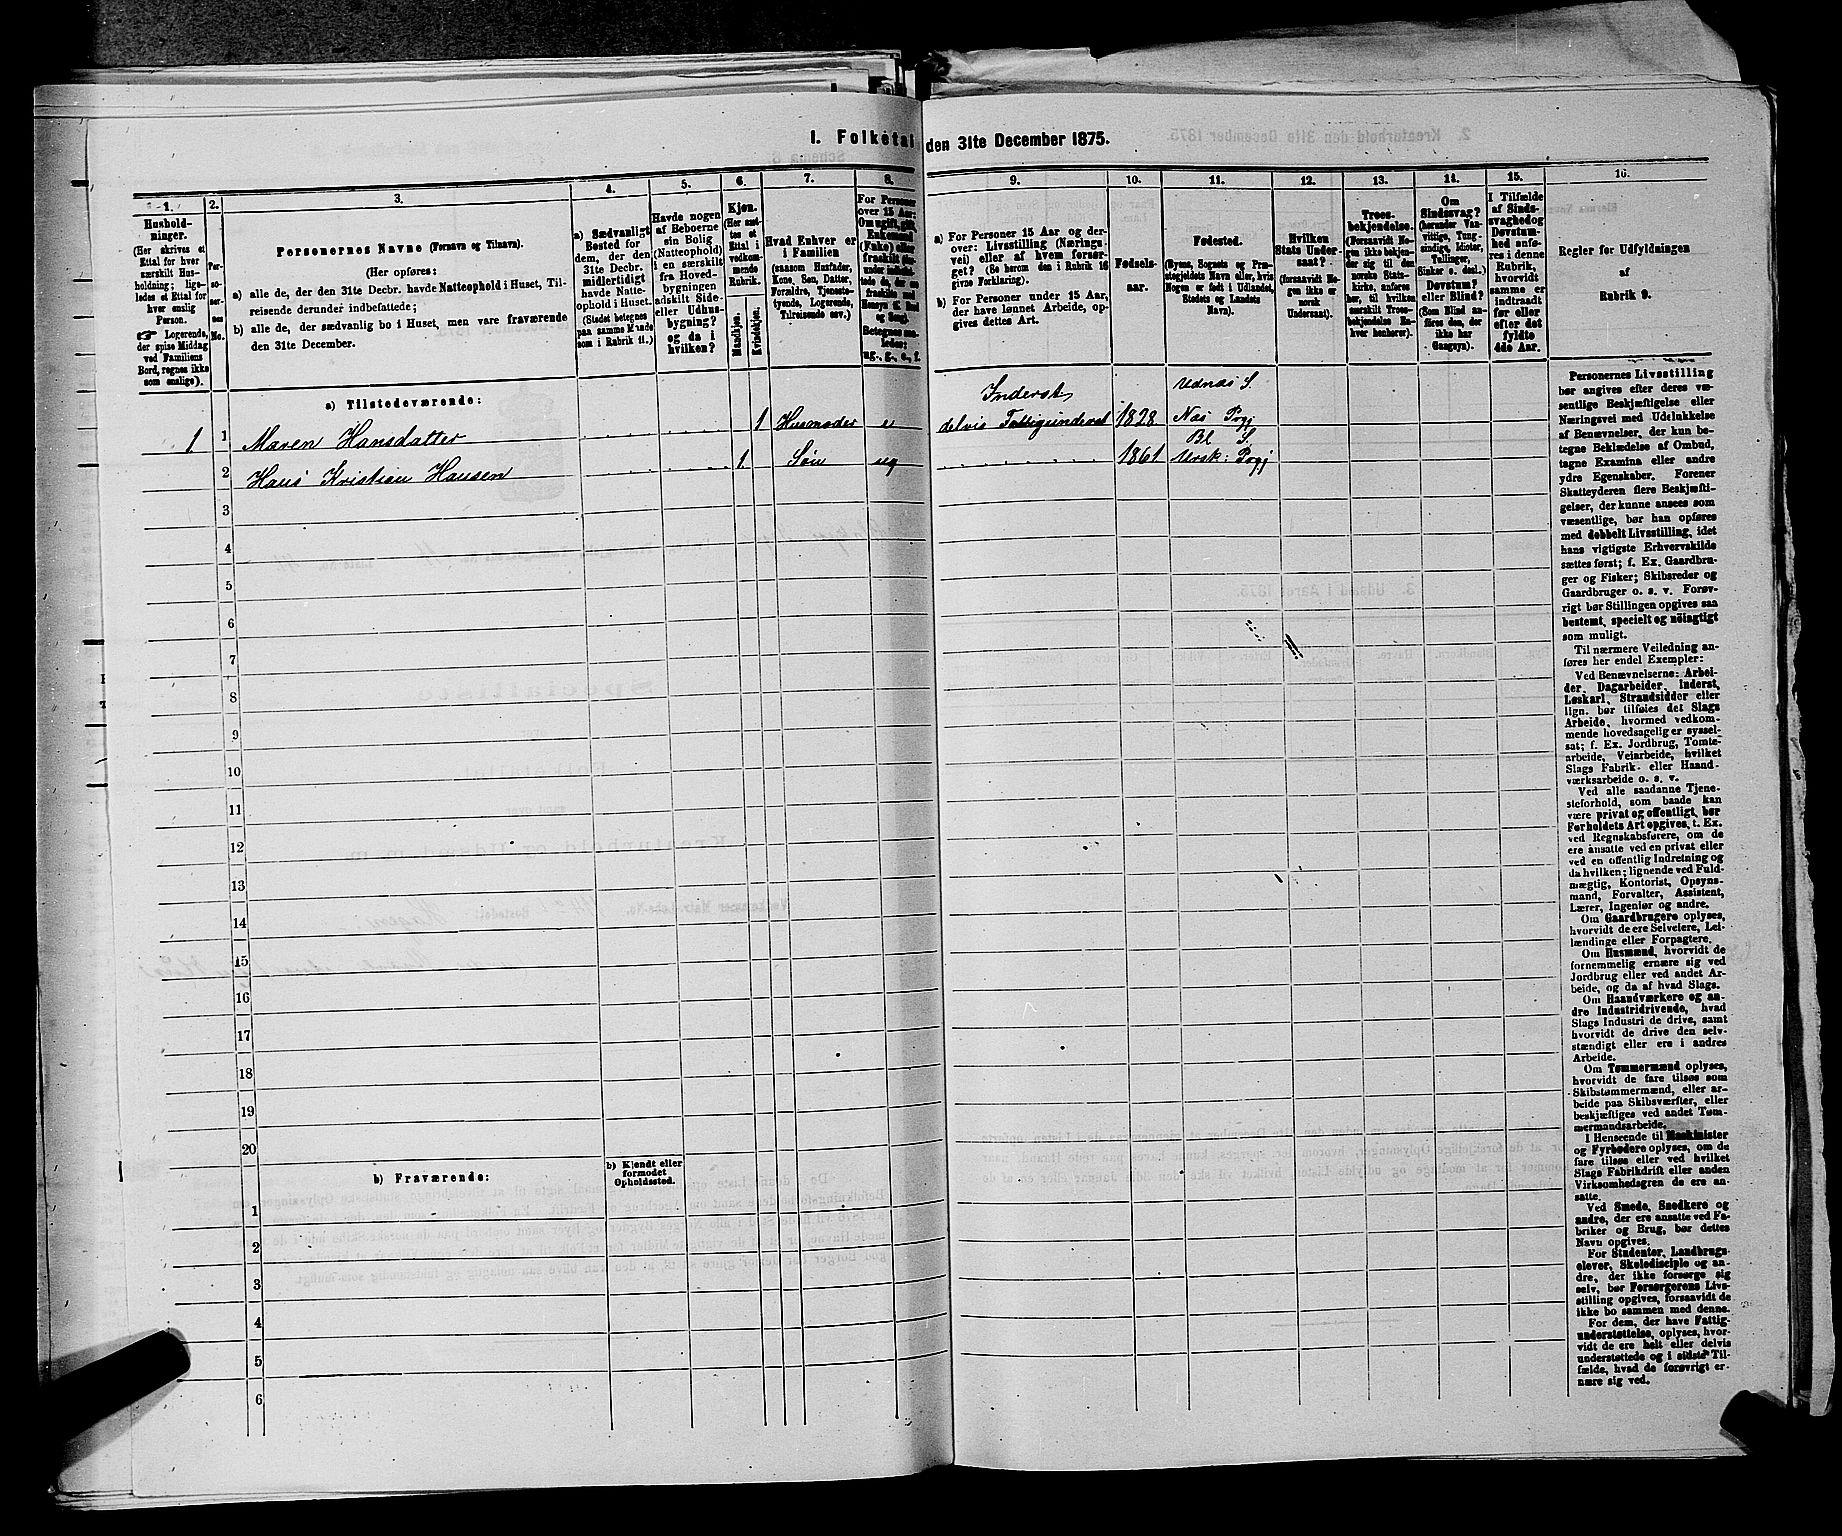 1. Folketal den 31te December 1875.
1.
Hushold-
ninger.
(Her skrives et
Ettal for hver
særskilt Hus-
holdning; lige-
ledes et Ettal for
hver enslig
Person.
Logerende,
der spise Middag
ved Familiens
Bord, regnes ikke
som enslige).
2.
Per-
so-
ner-
nes
No.
3.
Personernes Navne (Fornavn og Tilnavn).
(Her opføres:
a) alle de, der den 31te Decbr. havde Natteophold i Huset, Til-
reisende derunder indbefattede;
b) alle de, der sædvanlig bo i Huset, men vare fraværende
den 31te December.
4.
a) Sædvanligt
Bosted for
dem, der den
31te Decbr.
midlertidigt
havde Natte-
ophold i Huset.
(Stedet betegnes
paa samme Maade
som i Rubrik 11.)
5.
Havde nogen
af Beboerne
sin Bolig
(Natteophold)
i en særskilt
fra Hoved-
bygningen
adskilt Side-
eller Udhus-
bygning?
og da i
hvilken?
6.
Kjøn.
(Her sæt-
tes et
Ettal i
vedkom-
mende
Rubrik.
Mandkjøn.
Kvindekjøn.
7.
Hvad Enhver er
i Familien
(saasom Husfader,
Kone, Søn, Datter,
Forældre, Tjeneste-
tyende, Logerende,
Tilreisende osv.)
8.
For Personer
over 15 Aar:
Om ugift, gift,
Enkemand
(Enke) eller
fraskilt
Betegnes saa-
ledes:
ug., g., e., f.
9.
a) For Personer 15 Aar og der-
over: Livsstilling (Nærings-
vei) eller af hvem forsør-
get? (Se herom den i Rubrik 16
givne Forklaring).
b) For Personer under 15 Aar,
der have lønnet Arbeide, op-
gives dettes Art.
10.
Fødsels-
aar.
11.
Fødested.
(Byens, Sognets og Præ-
stegjeldets Navn eller, hvis
Nogen er født i Udlandet,
Stedets og Landets
Navn).
12.
Hvilken
Stats Under-
saat?
(forsaavidt No-
gen ikke er
norsk
Undersaat).
13.
Troes-
bekjendelse.
(Forsaavidt No-
gen ikke bekjen-
der sig til
den norske Stats-
kirke, anføres
her, til hvilken
særskilt Troes-
bekjendelse En-
hver henhører).
14.
Om
Sindssvag?
(herunder Van-
vittige, Tung-
sindige, Idioter,
Tullinger,
Sinker o. desl.)
Døvstum?
eller Blind?
(Som Blind an-
føres den, der
ikke har
Gangsyn).
15.
I Tilfælde
af Sinds-
svaghed og
Døvstum-
hed anfø-
res i denne
Rubrik,
hvorvidt
samme er
indtraadt
før eller
efter det
fyldte
4de Aar.
16.
Regler for Udfyldningen
af
Rubrik 9.
a) Tilstedeværende:
1 1 Maren Hansdatter 1 Husmoder e Inderst delvis Fattigunderst 1828 Udnæs S. Næs Pgj
2 Hans Kristian Hansen 1 Søn ug 1861 Bl S. Ursk: Pgj
3
4
5
6
7
8
9
10
11
12
13
14
15
16
17
18
19
20
b) Fraværende:
b) Kjendt eller
formodet
Opholdssted.
1
2
3
4
5
6
Personernes Livsstilling
bør angives efter deres væ-
sentlige Beskjæftigelse eller
Næringsvei med Udelukkelse
af Benævnelser, der kun be-
tegne Beklædelse af Ombud,
tagne Examina eller andre
ydre Egenskaber. Forener
Skatteyderen flere Beskjæfti-
gelser, der kunne ansees som
væsentlige, bør han opføres
med dobbelt Livsstilling, idet
hans vigtigste Erhvervskilde
sættes først; f. Ex. Gaardbru-
ger og Fisker; Skibsreder og
Gaardbruger o. s. v. Forøv-
rigt bør Stillingen opgives saa
bestemt, specielt og nöiagtigt
som muligt.
Til nærmere Veiledning an-
føres her endel Exempler:
Ved Benævnelserne: Arbei-
der, Dagarbeider, Inderst,
Løskarl, Strandsidder eller
lign. bør tilføies det Slags
Arbeide, hvormed vedkom-
mende hovedsagelig er syssel-
sat; f. Ex. Jordbrug, Tomte-
arbeide, Veiarbeide, hvilket
Slags Fabrik- eller Haand-
værksarbeide o. s. v.
Ved alle saadanne Tjene-
steforhold, som baade kan
være privat og offentligt, bør
Forholdets Art opgives, t. Ex.
ved Regnskabsførere, om de
ere ansatte ved en privat eller
ved en offentlig Indretning og
da hvilken; lignende ved Fuld-
mægtig, Kontorist, Opsyns-
mand, Forvalter, Assistent,
Lærer, Ingeniør og andre.
Om Gaardbrugere oplyses,
hvorvidt de ere Selveiere, Lei-
lændinge eller Forpagtere.
Om Husmænd, hvorvidt de
fornemmelig ernære sig ved
Jordbrug eller ved andet Ar-
beide, og da af hvad Slags.
Om Haandværkere og an-
dre Industridrivende, hvad
Slags Industri de drive, samt
hvorvidt de drive den selv-
stændigt eller ere i andres
Arbeide.
Om Tømmermænd oplyses,
hvorvidt de fare tilsøs som
Skibstømmermænd, eller ar-
beide paa Skibsværfter, eller
beskjæftiges ved andet Tøm-
mermandsarbeide.
I Henseende til Maskinister
og Fyrbødere oplyses, om de
fare tilsøs eller ved hvilket
Slags Fabrikdrift eller anden
Virksomhedsgren de ere an-
satte.
Ved Smede, Snedkere og
andre, der ere ansatte ved Fa-
briker og Brug, bør dettes
Navn opgives.
For Studenter, Landbrugs-
elever, Skoledisciple og an-
dre, der ikke forsørge sig
selv, bør Forsørgerens Livs-
stilling opgives, forsaavidt de
ikke bo sammen med denne.
For dem, der have Fattig-
understøttelse, oplyses, hvor-
vidt de ere helt eller delvis
understøttede og i sidste Til-
fælde, hvad de forøvrigt er-
nære sig ved.